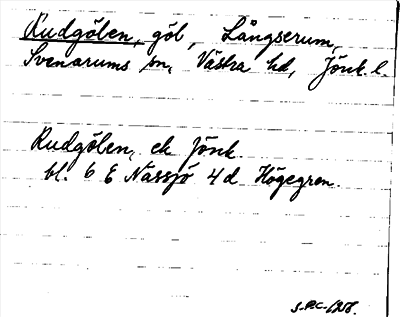 Rudgölen, göl, Långserum,
Svenarums sn, Västra hd, Jönk. l.
Rudgölen, ek Jönk.
bl. 6 E Nässjö 4d Högegren.